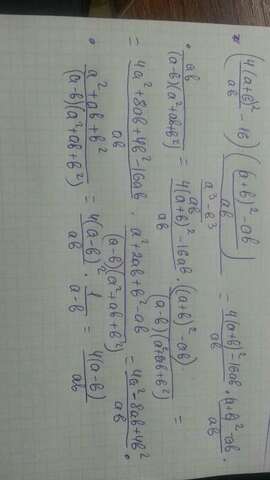 * (4(a+b)²/ab - 16) (((a+b)² - ab)/ab / (a³-b³)/ab) = (4(a+b)² - 16ab)/ab · ((a+b)² - ab)/ab ·
· ab/((a-b)(a²+ab+b²)) = (4(a+b)² - 16ab)/ab · ((a+b)² - ab)/((a-b)(a²+ab+b²)) =
= (4a²+8ab+4b²-16ab)/ab · (a²+2ab+b²-ab)/((a-b)(a²+ab+b²)) = (4a²-8ab+4b²)/ab ·
· (a²+ab+b²)/((a-b)(a²+ab+b²)) = 4(a-b)²/ab · 1/(a-b) = 4(a-b)/ab